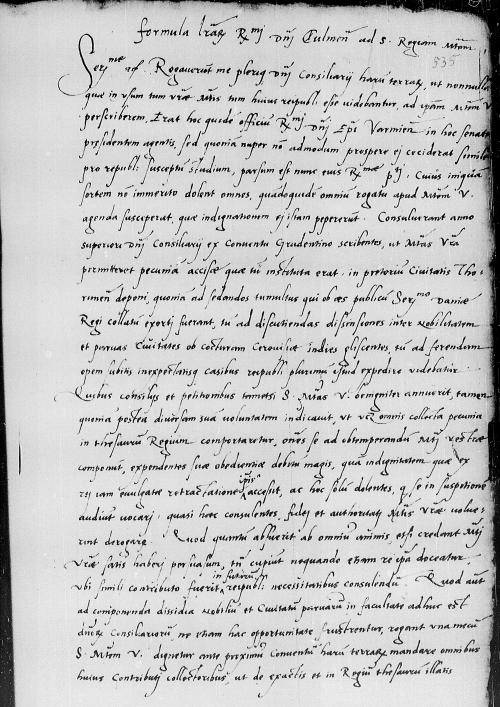 formula lrarz Rmi Dnj Culmen ad S. Regiam Mtem
535
Serme etc. Rogaverunt me pleriq Dnj Consiliarij harum terrarz, ut nonnulla
quae in usum tum vrae Mtis tum huius reipubli esse videbantur, ad ipsam Mtem V
perscriberem, Erat hoc quide officiu Rmi Dnj Epi Varmien in hoc senatu
presidentem agentis, sed quonia nuper no admodum prospere ei ceciderat simile
pro republi susceptu studium, parsum est nunc eius Rmae ptj. Cuius iniqua
sortem no immerito dolent omnes, quadoquide omniu rogatu apud Mtem V.
agenda susceperat, quae indignationem ej istam pepererut. Consuluerant anno
superiori Dnj Consiliarij ex Conventu Grudentino scribentes, ut Mtas Vra
permitteret pecunia accisae quae tu instituta erat in pretoriu Civitatis Tho
runen deponi, quonia ad sedandos tumultus qui ob aes publicu Sermo Daniae
Regi collatu exorti fuerant, tu ad discutiendas dissensiones inter Nobilitatem
et parvas Civitates ob cocturam Cerevisiae indies gliscentes tu ad ferendam
opem subitis inexpectatisq casibus republi plurimu istud expedire videbatur.
Quibus consilijs et petitionibus tametsi S. Mtas V. clementer annuerit, tamen
quonia postea diversam sua voluntatem indicavit, ut vcz omnis collecta pecunia
in thesauru Regium comportaretur, omes se ad obtemperandu Mti vestrae
componut, expendentes suae obedientiae debitu magis, qua indignitatem quae ex
rej iam evulgatae retractatione ipis accessit, ac hoc solu dolentes, q se in suspitione
audiut vocarj, quasi haec consulentes, fidej et authoritatj Mtis Vrae volue-
rint derogare. Quod quantu abfuerit ab omniu animis, etsi credant Mtj
Vrae satis haberj persuasum, tn cupiut nequando etiam re ipa doceatur
ubi simili contributo fuerit in futuru reipubli necessitatibus consulendu. Quod aut
ad componenda dissidia Nobiliu et Civitatu parvaru in facultate adhuc est
dictorz Consiliariorum, ne etiam hac opportunitate frustrentur, rogant una mecu
S. Mtem V. dignetur ante proximu Conventu haru terrarz mandare omnibus
huius Contributj collectoribus, ut de exactis et in Regiu thesauru illatis